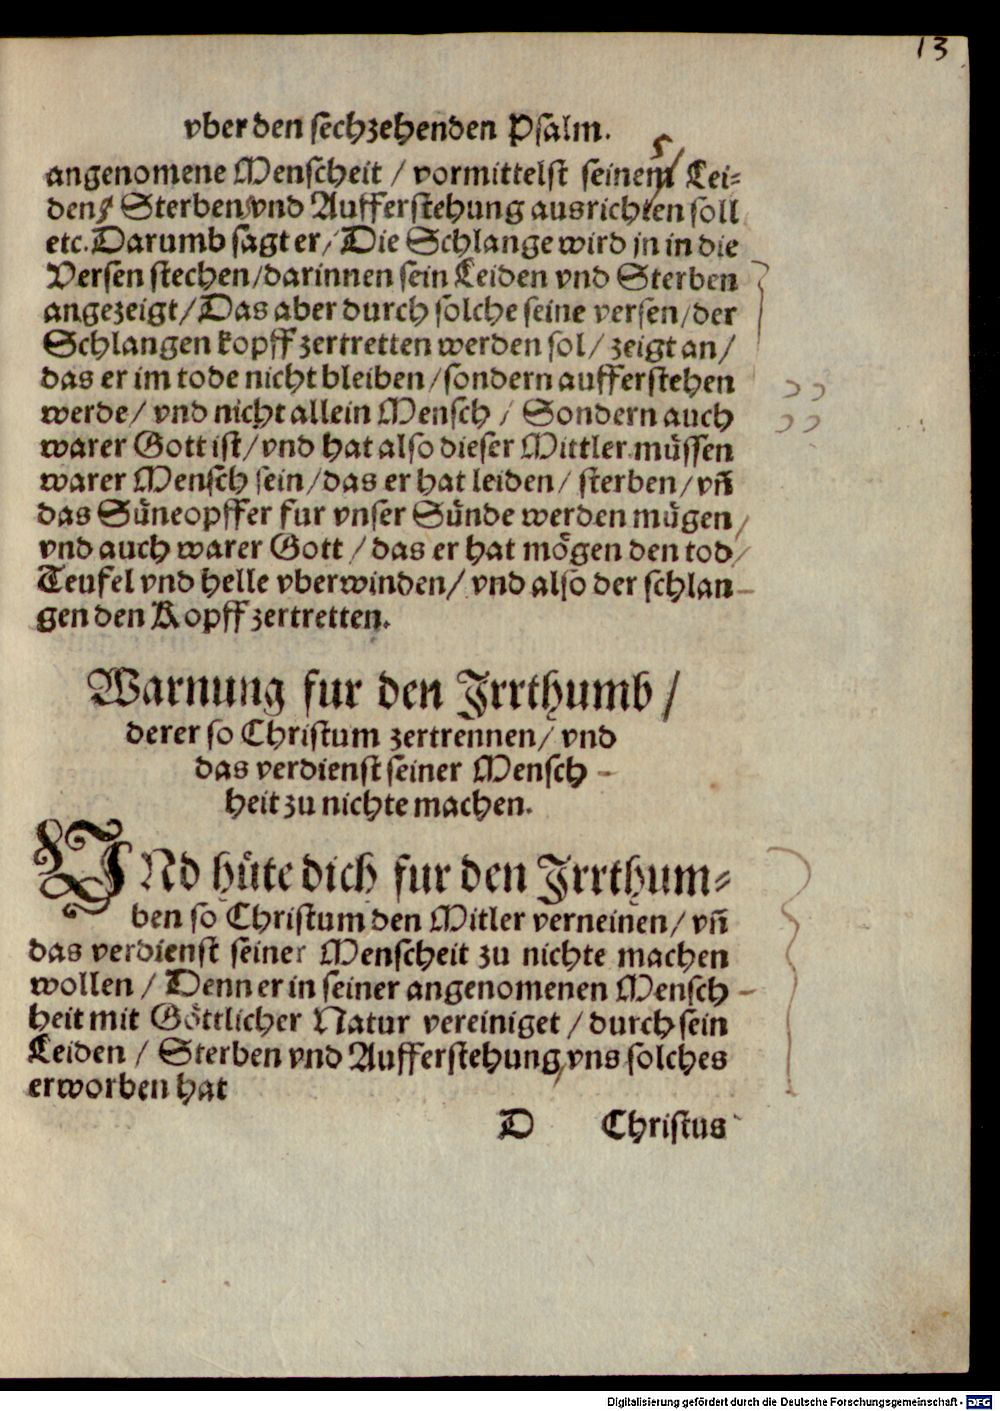 13
vber den sechzehenden Psalm.
angenomene Menscheit / vormittelst seinem Lei⸗
den / Sterben vnd Aufferstehung ausrichten soll
etc. Darumb sagt er / Die Schlange wird jn in die
Versen stechen / darinnen sein Leiden vnd Sterben
angezeigt / Das aber durch solche seine versen / der
Schlangen kopff zertretten werden sol / zeigt an /
das er im tode nicht bleiben / sondern aufferstehen
werde / vnd nicht allein Mensch / Sondern auch
warer Gott ist / vnd hat also dieser Mittler müssen
warer Mensch sein / das er hat leiden / sterben / vñ
das Süneopffer fur vnser Sünde werden mügen /
vnd auch warer Gott / das er hat mögen den tod /
Teufel vnd helle vberwinden / vnd also der schlan-
gen den Kopff zertretten.
Warnung fur den Irrthumb /
derer so Christum zertrennen / vnd
das verdienst seiner Mensch-
heit zu nichte machen.
VNd hüte dich fur den Irrthum⸗
ben so Christum den Mitler verneinen / vñ
das verdienst seiner Menscheit zu nichte machen
wollen / Denn er in seiner angenomenen Mensch-
heit mit Göttlicher Natur vereiniget / durch sein
Leiden / Sterben vnd Aufferstehung / vns solches
erworben hat
D Christus
Digitalisierung gefördert durch die Deutsche Forschungsgemeinschaft - DFG